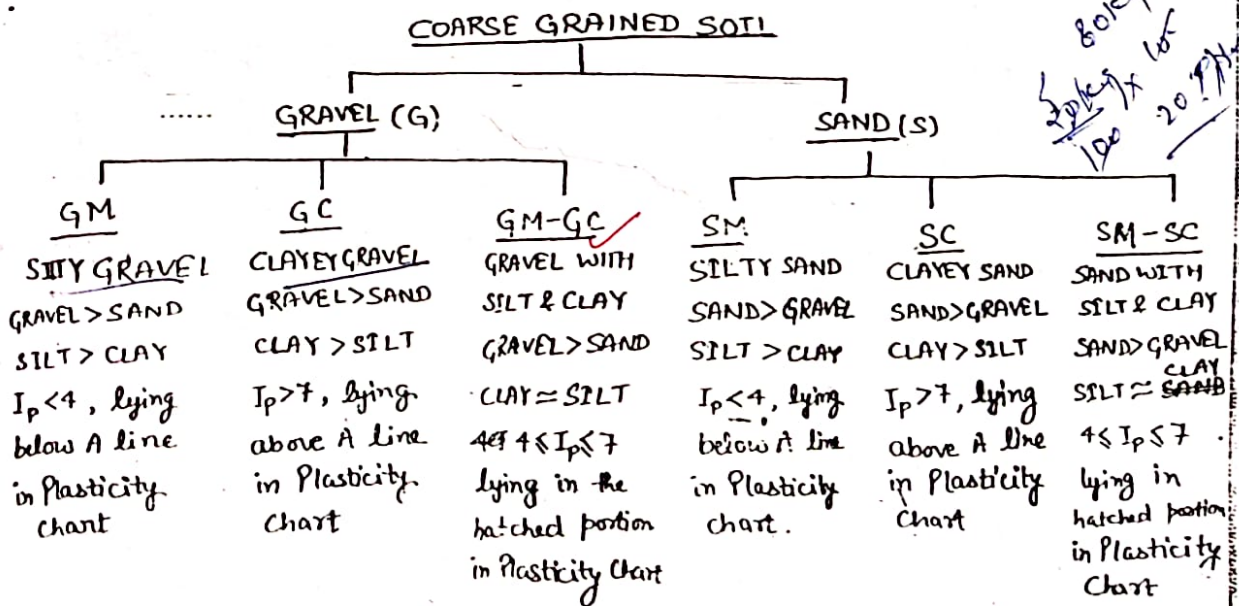 COARSE GRAINED SOIL
80k
20kg x 100
100
20
......
GRAVEL (G)
SAND (S)
GM
SILTY GRAVEL
GRAVEL > SAND
SILT > CLAY
Ip < 4, lying
below A line
in Plasticity
chart
GC
CLAYEY GRAVEL
GRAVEL > SAND
CLAY > SILT
Ip > 7, lying
above A line
in Plasticity
Chart
GM-GC
GRAVEL WITH
SILT & CLAY
GRAVEL > SAND
CLAY ≃ SILT
4 ≤ Ip ≤ 7
lying in the
hatched portion
in Plasticity Chart
SM
SILTY SAND
SAND > GRAVEL
SILT > CLAY
Ip < 4, lying
below A line
in Plasticity
chart.
SC
CLAYEY SAND
SAND > GRAVEL
CLAY > SILT
Ip > 7, lying
above A line
in Plasticity
Chart
SM-SC
SAND WITH
SILT & CLAY
SAND > GRAVEL
SILT ≃ CLAY
4 ≤ Ip ≤ 7.
lying in
hatched portion
in Plasticity
Chart